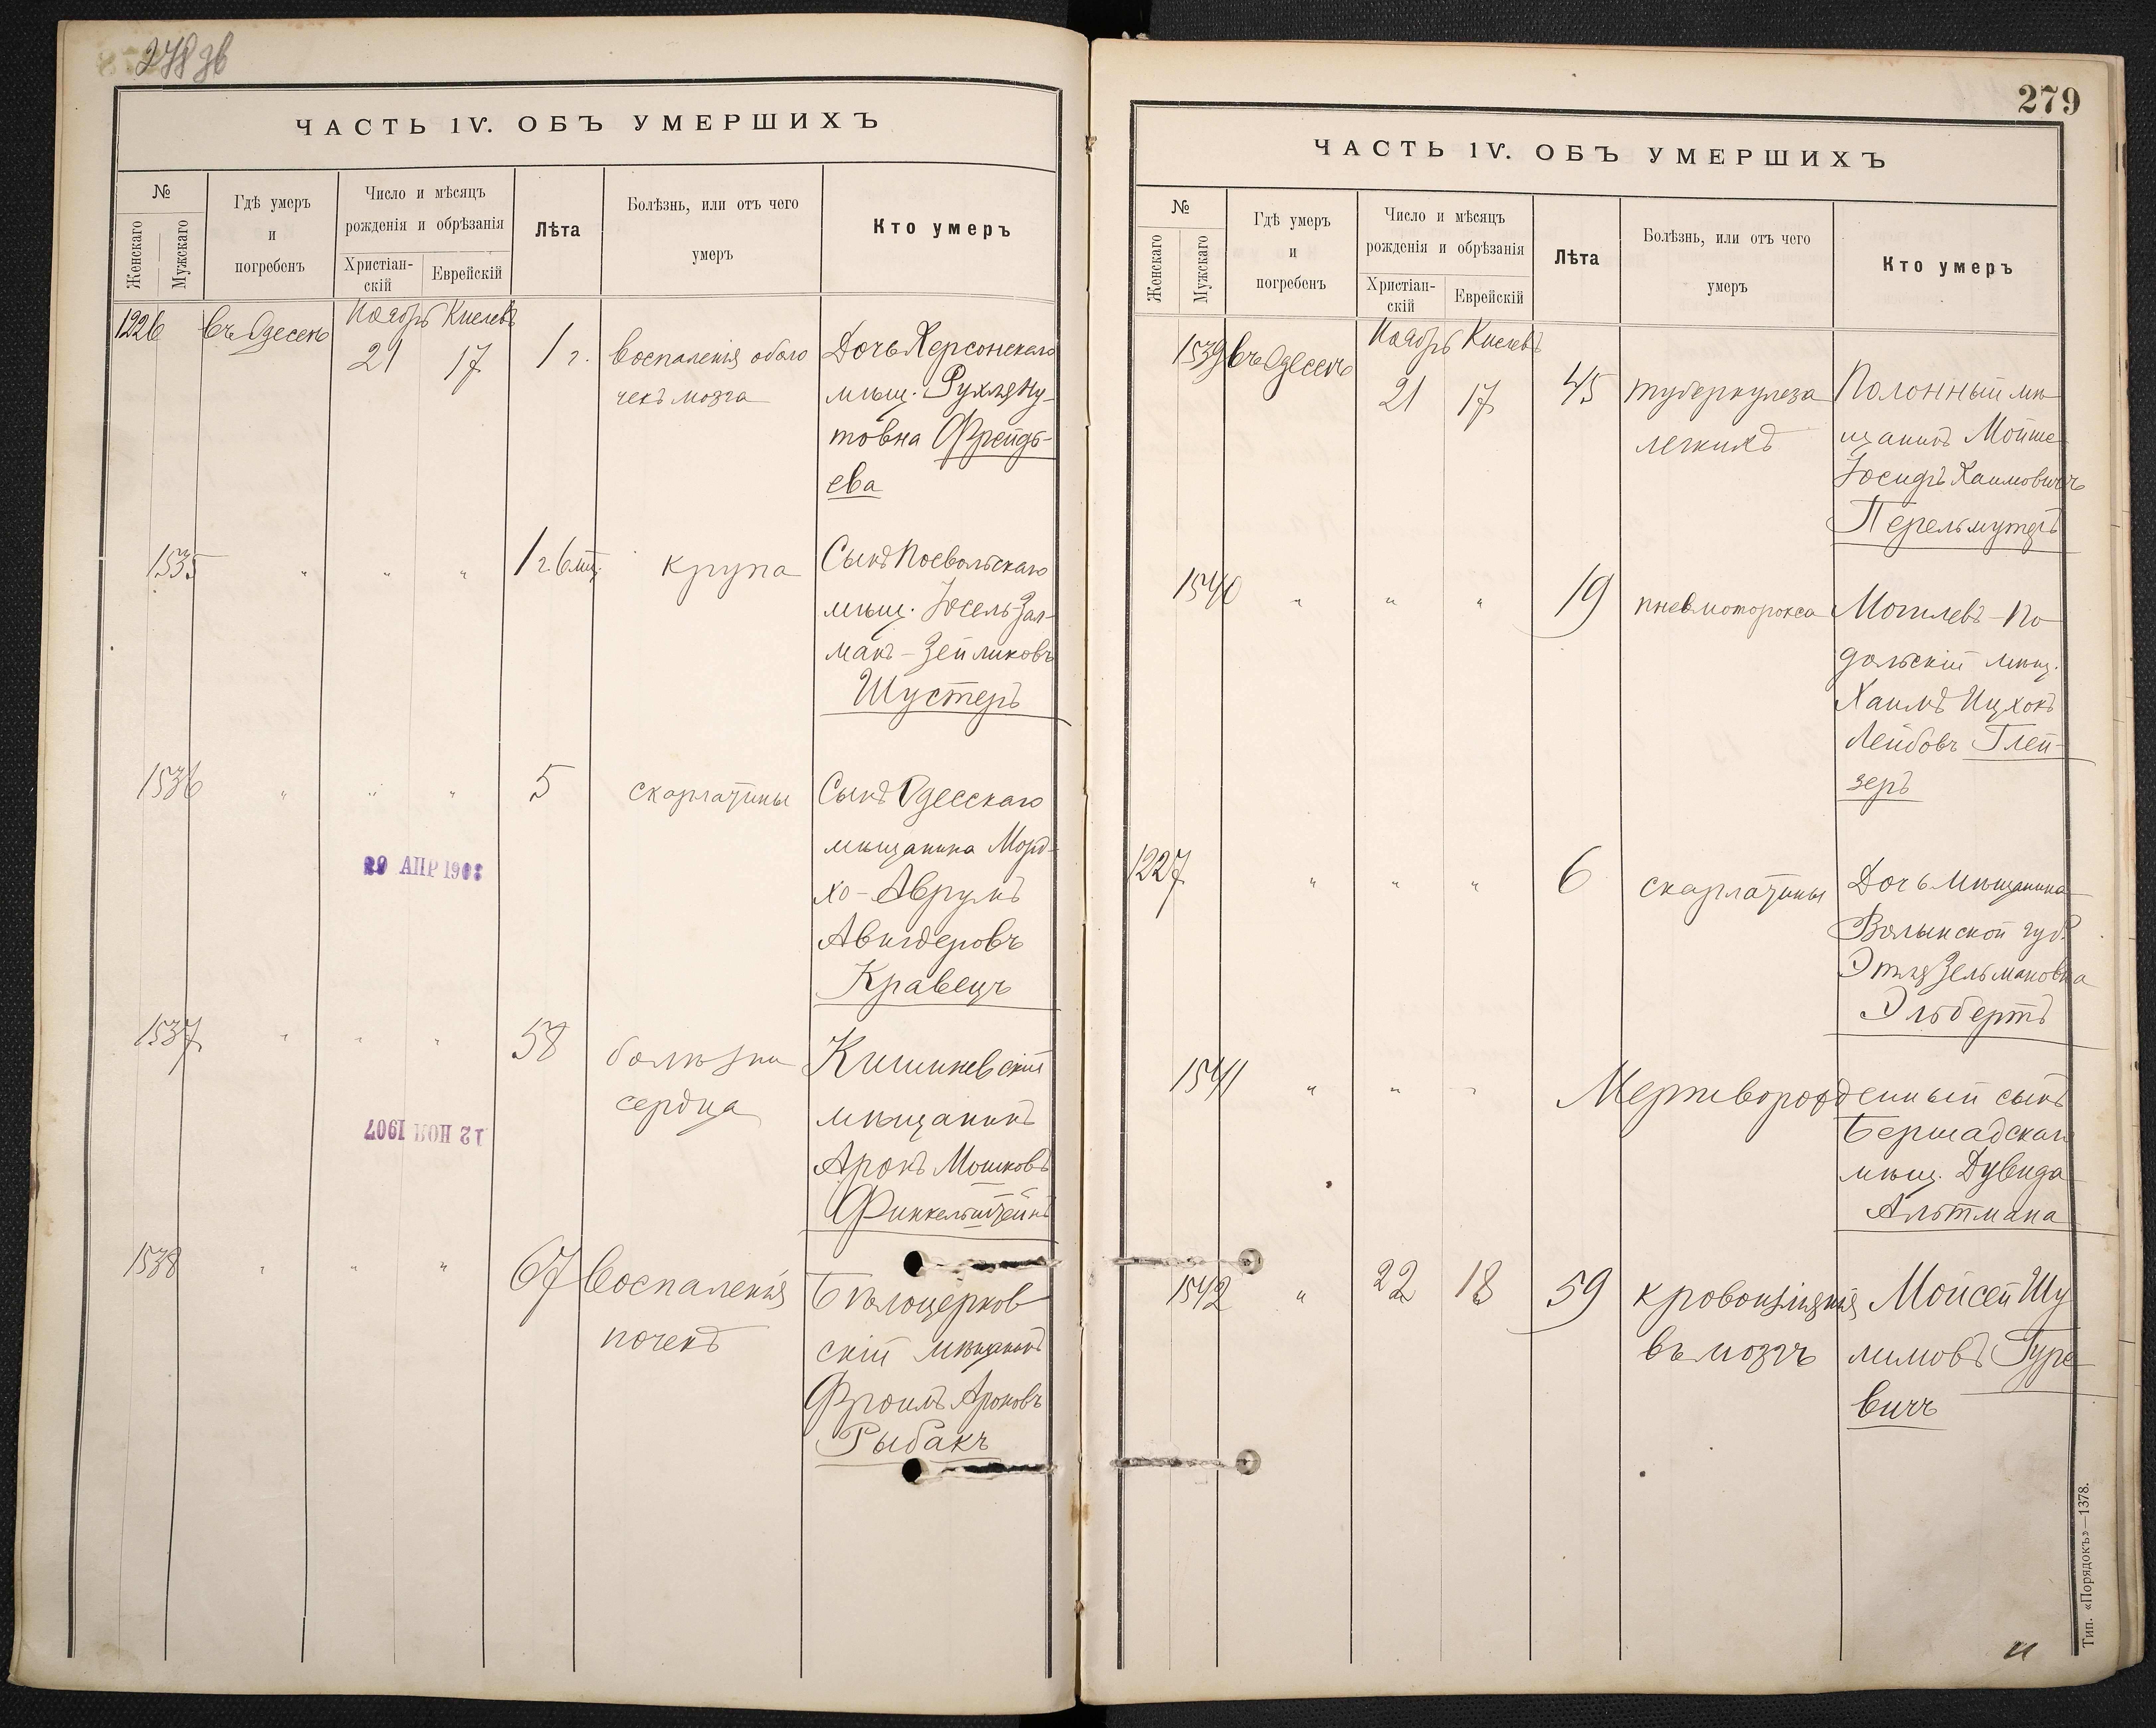 278 зв
ЧАСТЬ IV. ОБЪ УМЕРШИХЪ
№
Женскаго
Мужскаго
Гдѣ умеръ
и
погребенъ
Число и мѣсяцъ
рожденія и обрѣзанія
Христіан-
скій
Еврейскій
Лѣта
Болѣзнь, или отъ чего
умеръ
Кто умеръ
Ноябрь Кислевъ
1226 въ Одессѣ 21 17 1 г. воспаленія оболо Дочь Херсонскаго
чекъ мозга мѣщ. Рухля Ну-
товна Фрейдь-
ева
1535 " " " 1 г 6 мѣс. крупа Сынъ Посвольскаго
мѣщ. Іосель-Зал-
манъ-Зейликовъ
Шустеръ
1536 " " " 5 скарлатины Сынъ Одесскаго
мѣщанина Морд-
хо-Аврумъ
Авигдеровъ
Кравецъ
29 АПР 1903
1537 " " " 58 болѣзни Кишиневскій
сердца мѣщанинъ
Аронъ Мошковъ
Финкельштейнъ
12 НОЯ 1907
1538 " " " 67 воспаленія Бѣлоцерков
почекъ скій мѣщанинъ
Фроимъ Ароновъ
Рыбакъ
279
ЧАСТЬ IV. ОБЪ УМЕРШИХЪ
№
Женскаго
Мужскаго
Гдѣ умеръ
и
погребенъ
Число и мѣсяцъ
рожденія и обрѣзанія
Христіан-
скій
Еврейскій
Лѣта
Болѣзнь, или отъ чего
умеръ
Кто умеръ
Ноябрь Кислевъ
1539 въ Одессѣ 21 17 45 туберкулеза Полонный мѣ
легкихъ щанинъ Мойше
Іосифъ Хаимовичъ
Перельмутеръ
1540 " " " 19 пневмоторокса Могилевъ-По
дольскій мѣщ.
Хаимъ Ицхокъ
Лейбовъ Глей-
зеръ
1227 " " " 6 скарлатины Дочь мѣщанина
Волынской губ.
Этля Зельмановна
Эльбертъ
1541 " " " Мертворожденный сынъ
Бершадскаго
мѣщ. Дувида
Альтмана
1542 " 22 18 59 кровоизліянія Мойсей Шу
въ мозгъ лимовъ Гуре
вичъ
Тип. «Порядокъ»—1378.